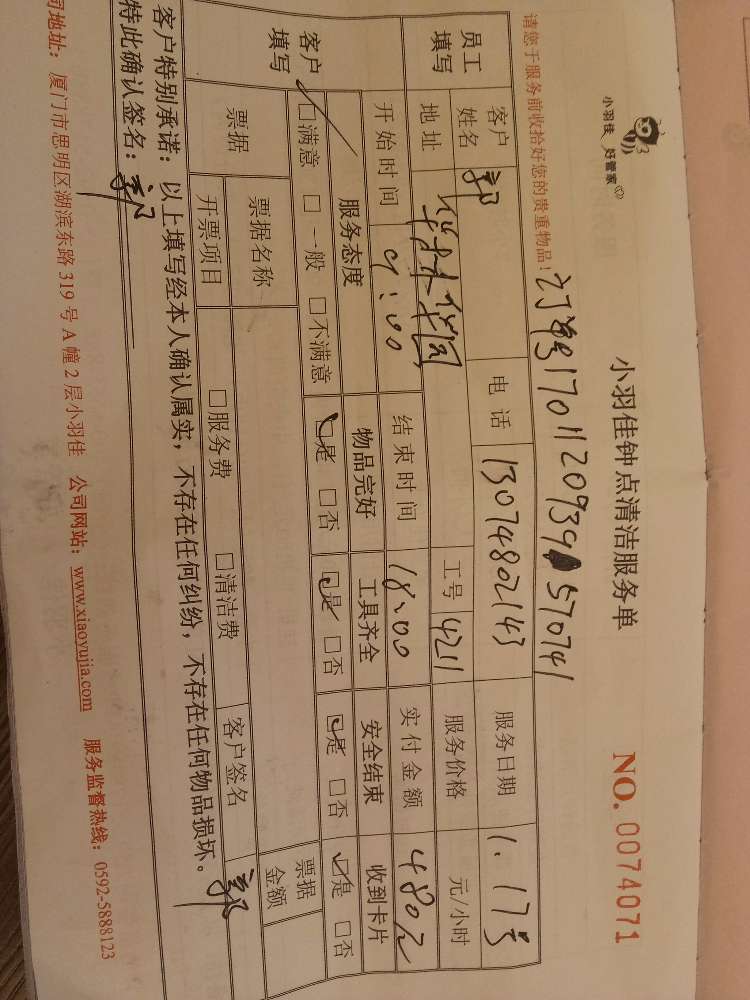 小羽佳 好管家
小羽佳钟点清洁服务单
NO. 0074071
请您于服务前收拾好您的贵重物品!
员工填写
客户姓名 郭 电话 13074802143 服务日期 1.17号
地址 工号 4211 服务价格 元/小时
开始时间 9:00 结束时间 18:00 实付金额 480元
客户填写
服务态度 物品完好 工具齐全 安全结束 收到卡片
□满意 □一般 □不满意 □是 □否 □是 □否 □是 □否 □是 □否
票据
票据名称 票据金额
开票项目 □服务费 □清洁费 客户签名 郭
客户特别承诺:以上填写经本人确认属实,不存在任何纠纷,不存在任何物品损坏。
特此确认签名:郭
司地址:厦门市思明区湖滨东路 319 号 A 幢 2 层小羽佳 公司网站:www.xiaoyujia.com 服务监督热线:0592-5888123